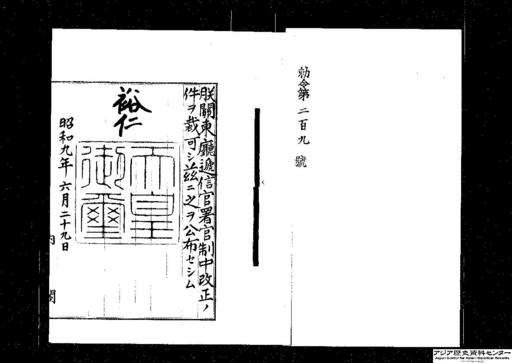 勅令第二百九號
朕關東廳遞信官署官制中改正ノ
件ヲ裁可シ茲ニ之ヲ公布セシム
裕仁
天皇
御璽
昭和九年六月二十九日
内閣
アジア歴史資料センター
Japan Center for Asian Historical Records